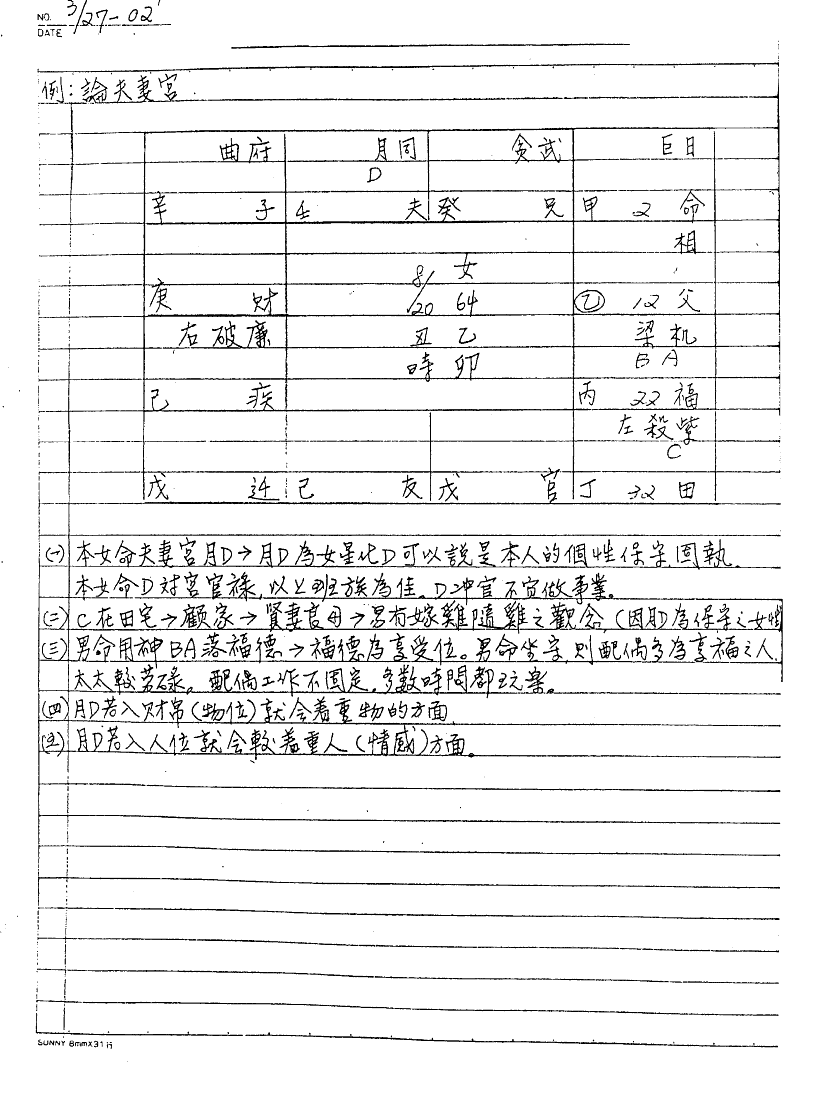 NO. 3/27-02'
DATE
例：論夫妻宮
曲府 月同 貪武 巨日
D
辛 子 壬 夫 癸 兄 甲 2 命
相
8/ 女
庚 財 /20 64 乙 12 父
右破廉 丑 乙 梁机
時 卯 B A
己 疾 丙 22 福
左殺紫
C
戊 迁 己 友 戊 官 丁 32 田
(一) 本女命夫妻宮月D→月D為女星化D可以說是本人的個性保守固執.
本女命D对宮官祿,以上班族為佳.D冲官不宜做事業.
(二) C在田宅→顧家→賢妻良母→另有嫁雞隨雞之觀念,(因月D為保守之女性
(三) 男命用神BA落福德→福德為享受位。男命坐守,則配偶多為享福之人.
太太較勞碌。配偶工作不固定.多數時間都在玩樂。
(四) 月D若入财帛(物位)就会着重物的方面.
(五) 月D若入人位就会較着重人(情感)方面。
SUNNY 8mmX31行